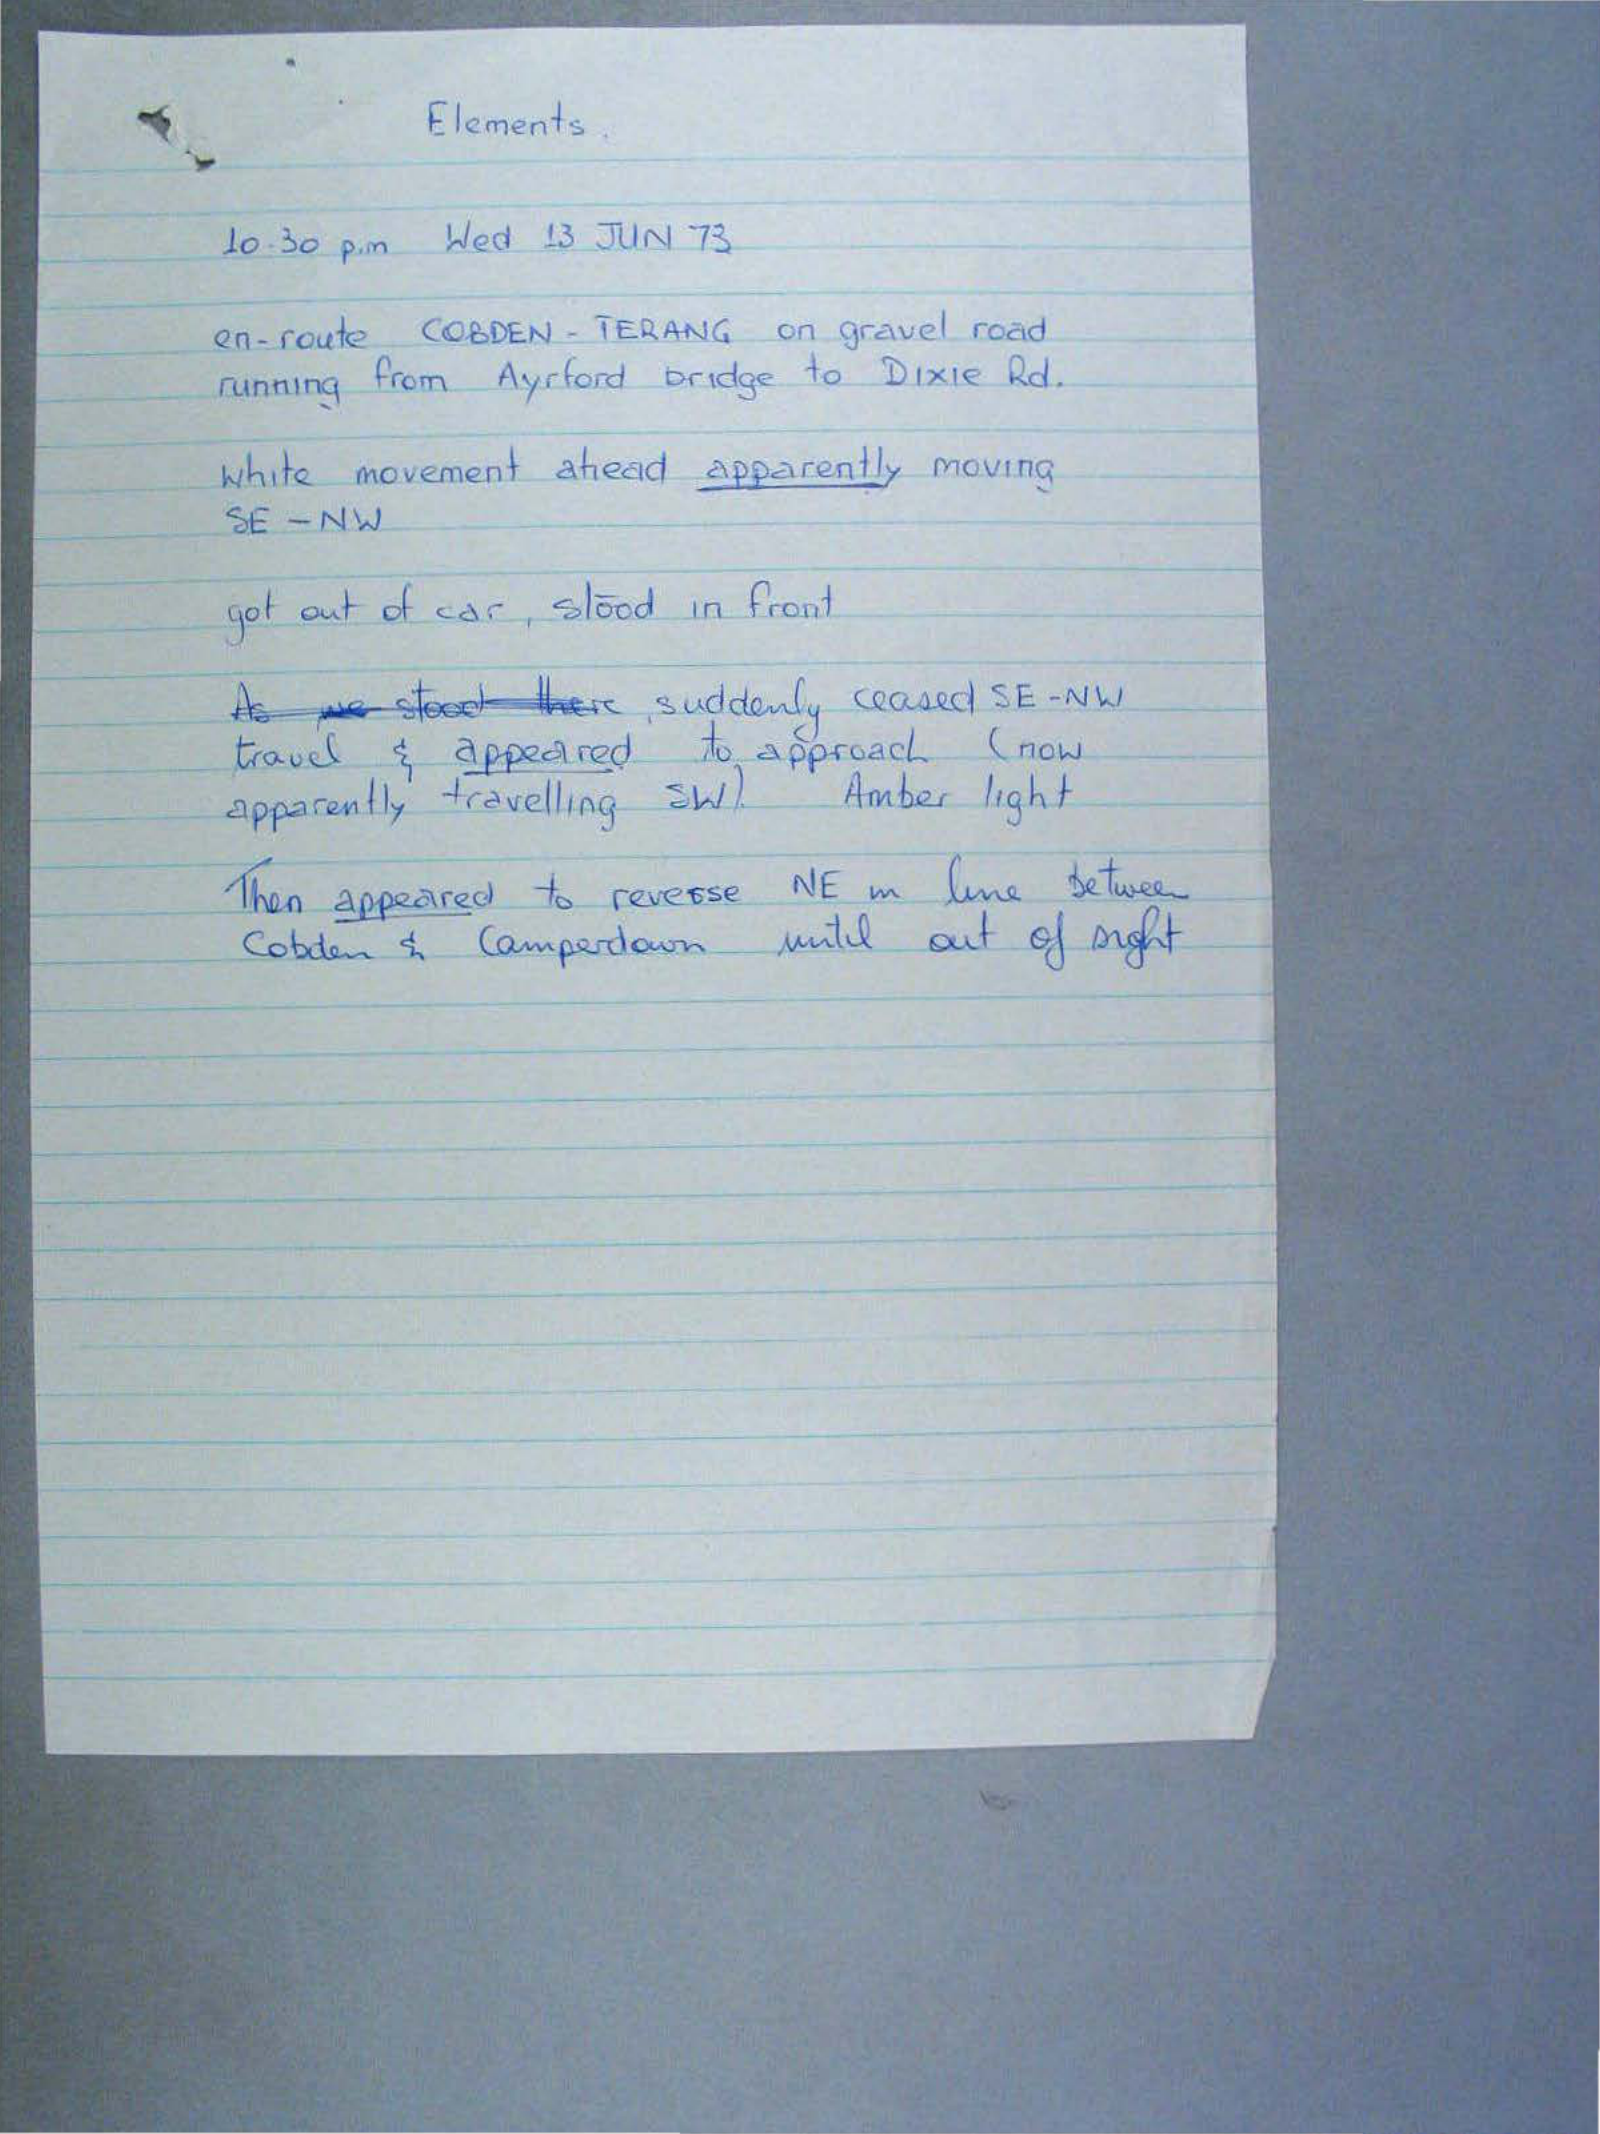 Elements.
10.30 p.m Wed 13 JUN 73
en-route COBDEN - TERANG on gravel road
running from Ayrford bridge to Dixie Rd.
White movement ahead apparently moving
SE - NW
got out of car, stood in front
As we stood there, suddenly ceased SE-NW
travel & appeared to approach (now
apparently travelling SW). Amber light
Then appeared to reverse NE in line between
Cobden & Camperdown until out of sight